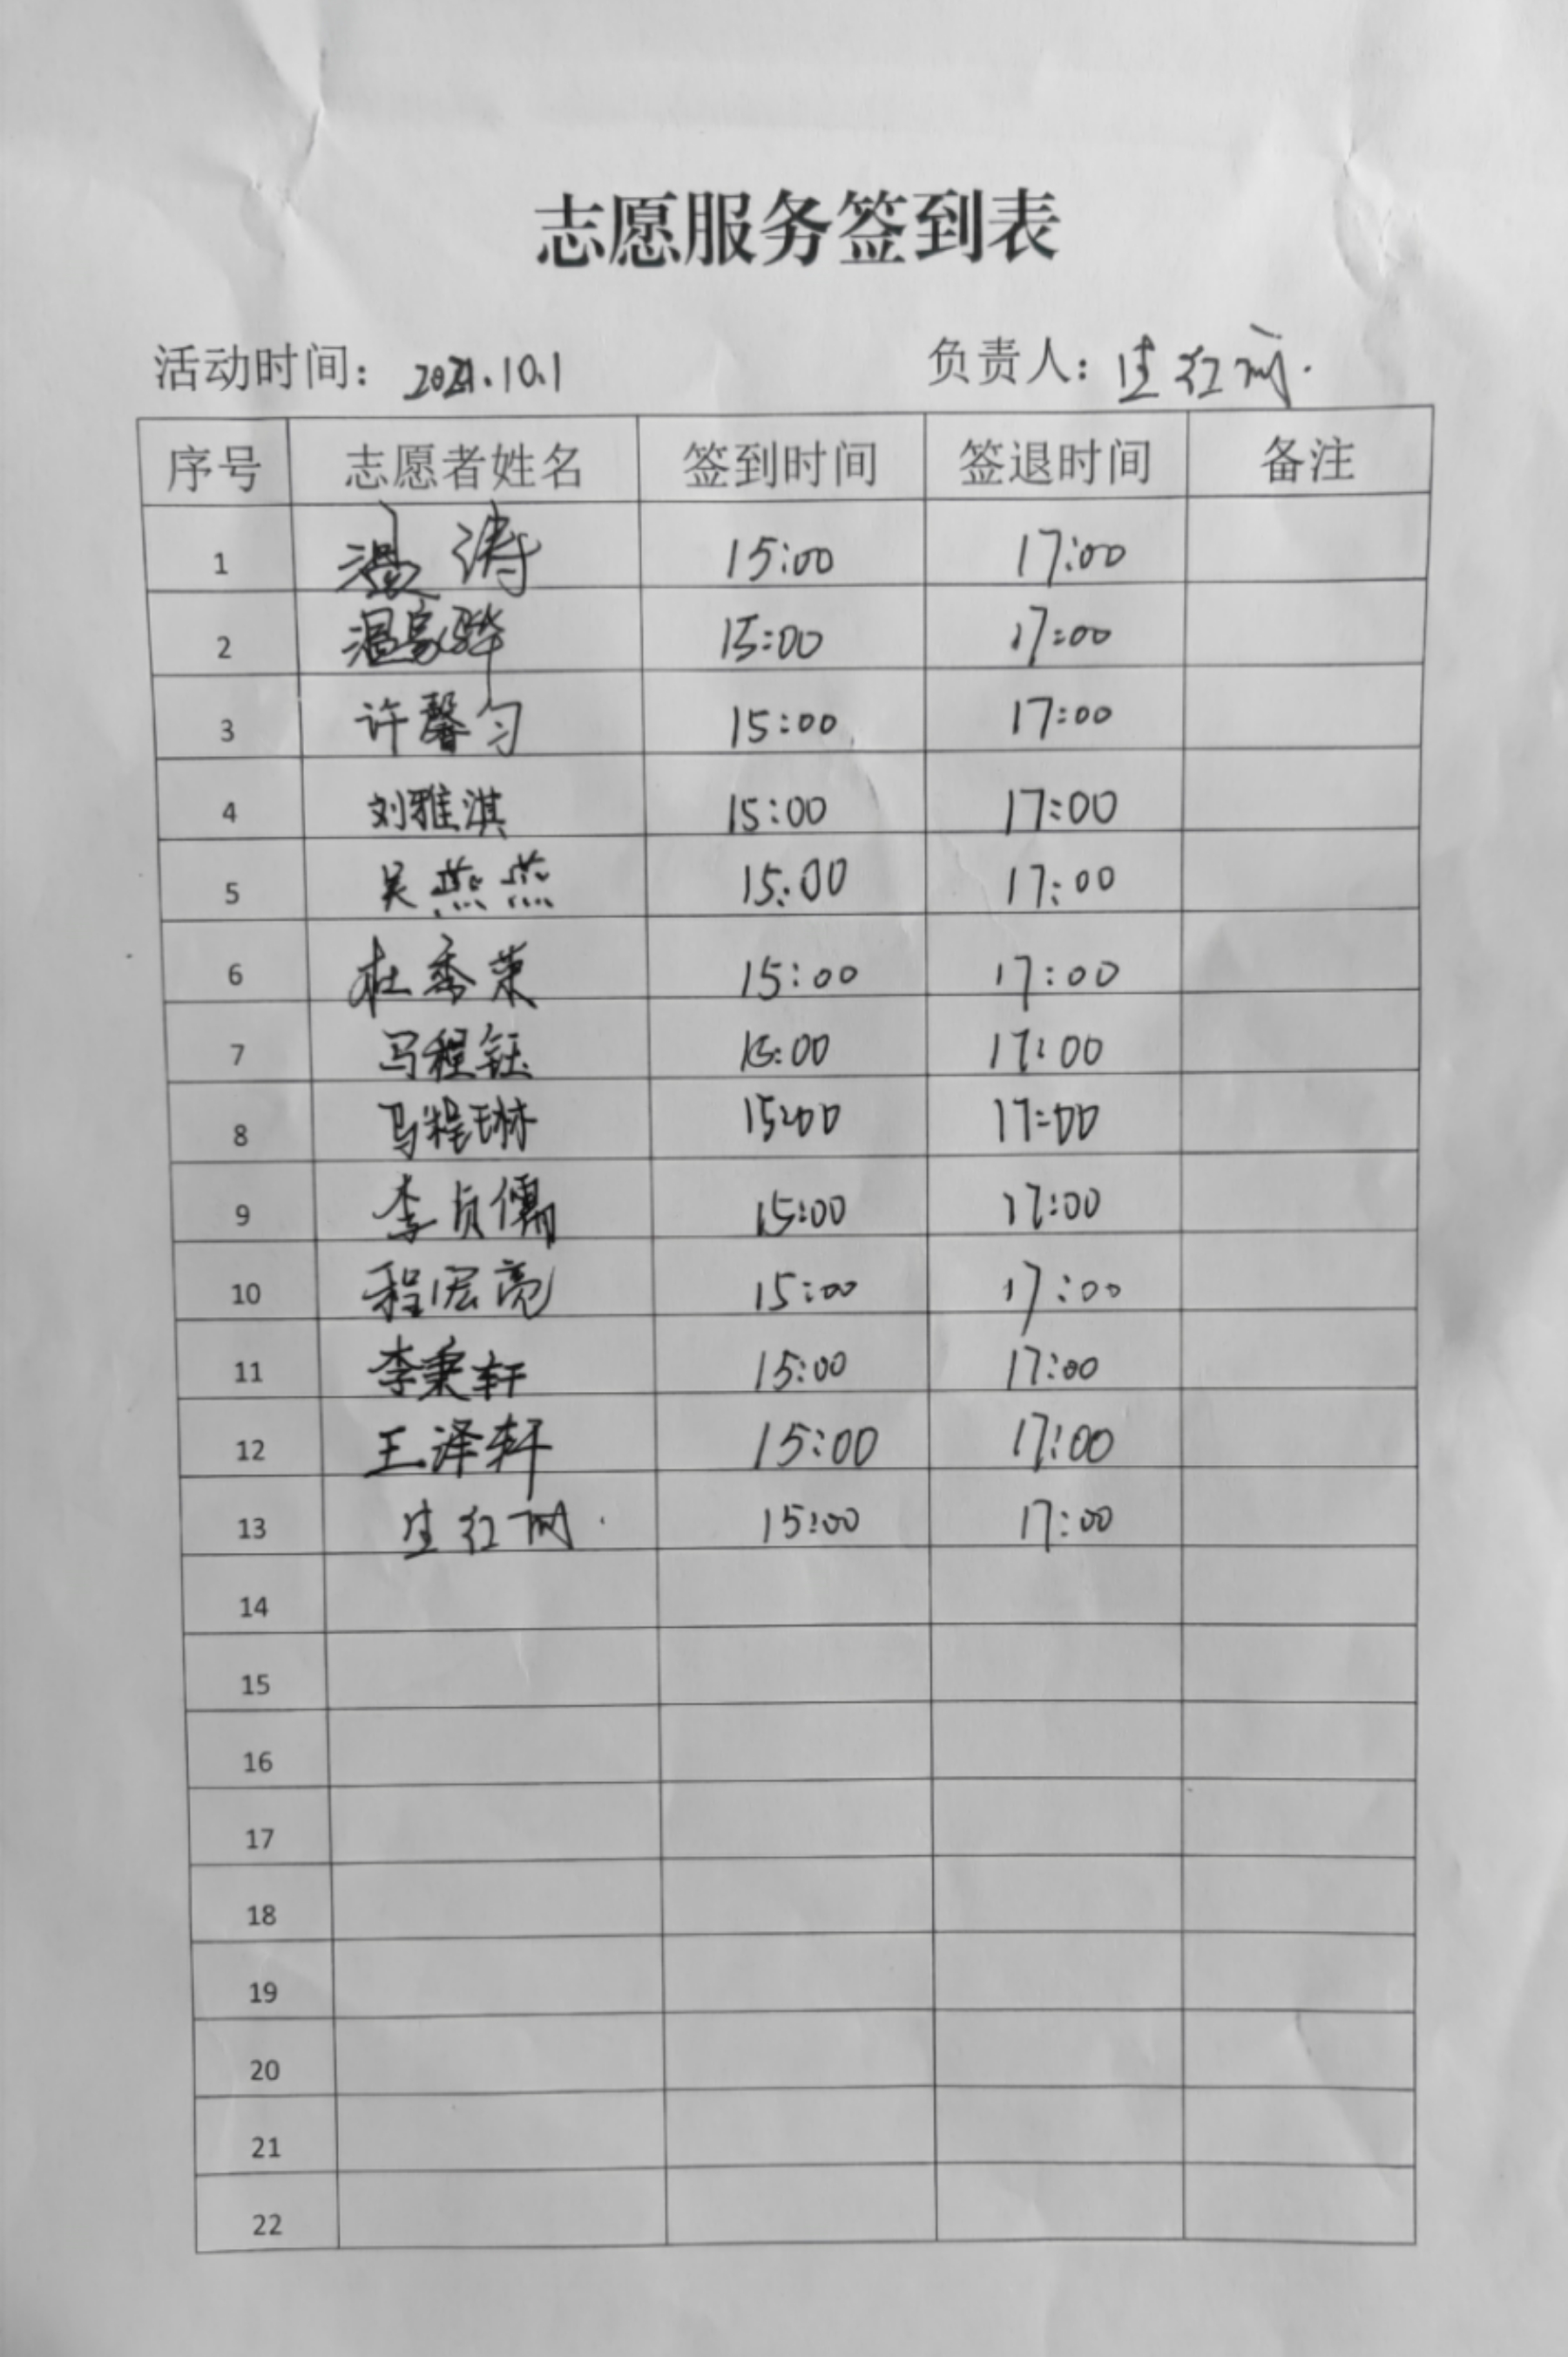 志愿服务签到表
活动时间：2021.10.1 负责人：生红
序号 志愿者姓名 签到时间 签退时间 备注
1 温涛 15:00 17:00
2 温家骅 15:00 17:00
3 许馨匀 15:00 17:00
4 刘雅淇 15:00 17:00
5 吴燕燕 15:00 17:00
6 杜秀荣 15:00 17:00
7 马程钰 15:00 17:00
8 马程琳 15:00 17:00
9 李贞儒 15:00 17:00
10 程宏亮 15:00 17:00
11 李秉轩 15:00 17:00
12 王泽轩 15:00 17:00
13 生红 15:00 17:00
14
15
16
17
18
19
20
21
22